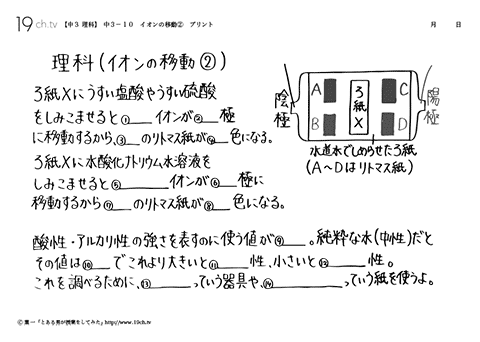 19ch.tv 【中3 理科】 中3-10 イオンの移動② プリント 月 日
理科(イオンの移動②)
ろ紙Xにうすい塩酸やうすい硫酸
をしみこませると①___イオンが②__極
に移動するから、③___のリトマス紙が④__色になる。
ろ紙Xに水酸化ナトリウム水溶液を
しみこませると⑤______イオンが⑥__極に
移動するから⑦___のリトマス紙が⑧__色になる。
陰極
A
B
ろ紙X
C
D
陽極
水道水でしめらせたろ紙
(A~Dはリトマス紙)
酸性・アルカリ性の強さを表すのに使う値が⑨___。純粋な水(中性)だと
その値は⑩___でこれより大きいと⑪____性、小さいと⑫____性。
これを調べるために、⑬_____っていう器具や、⑭________っていう紙を使うよ。
© 葉一「とある男が授業をしてみた」http://www.19ch.tv